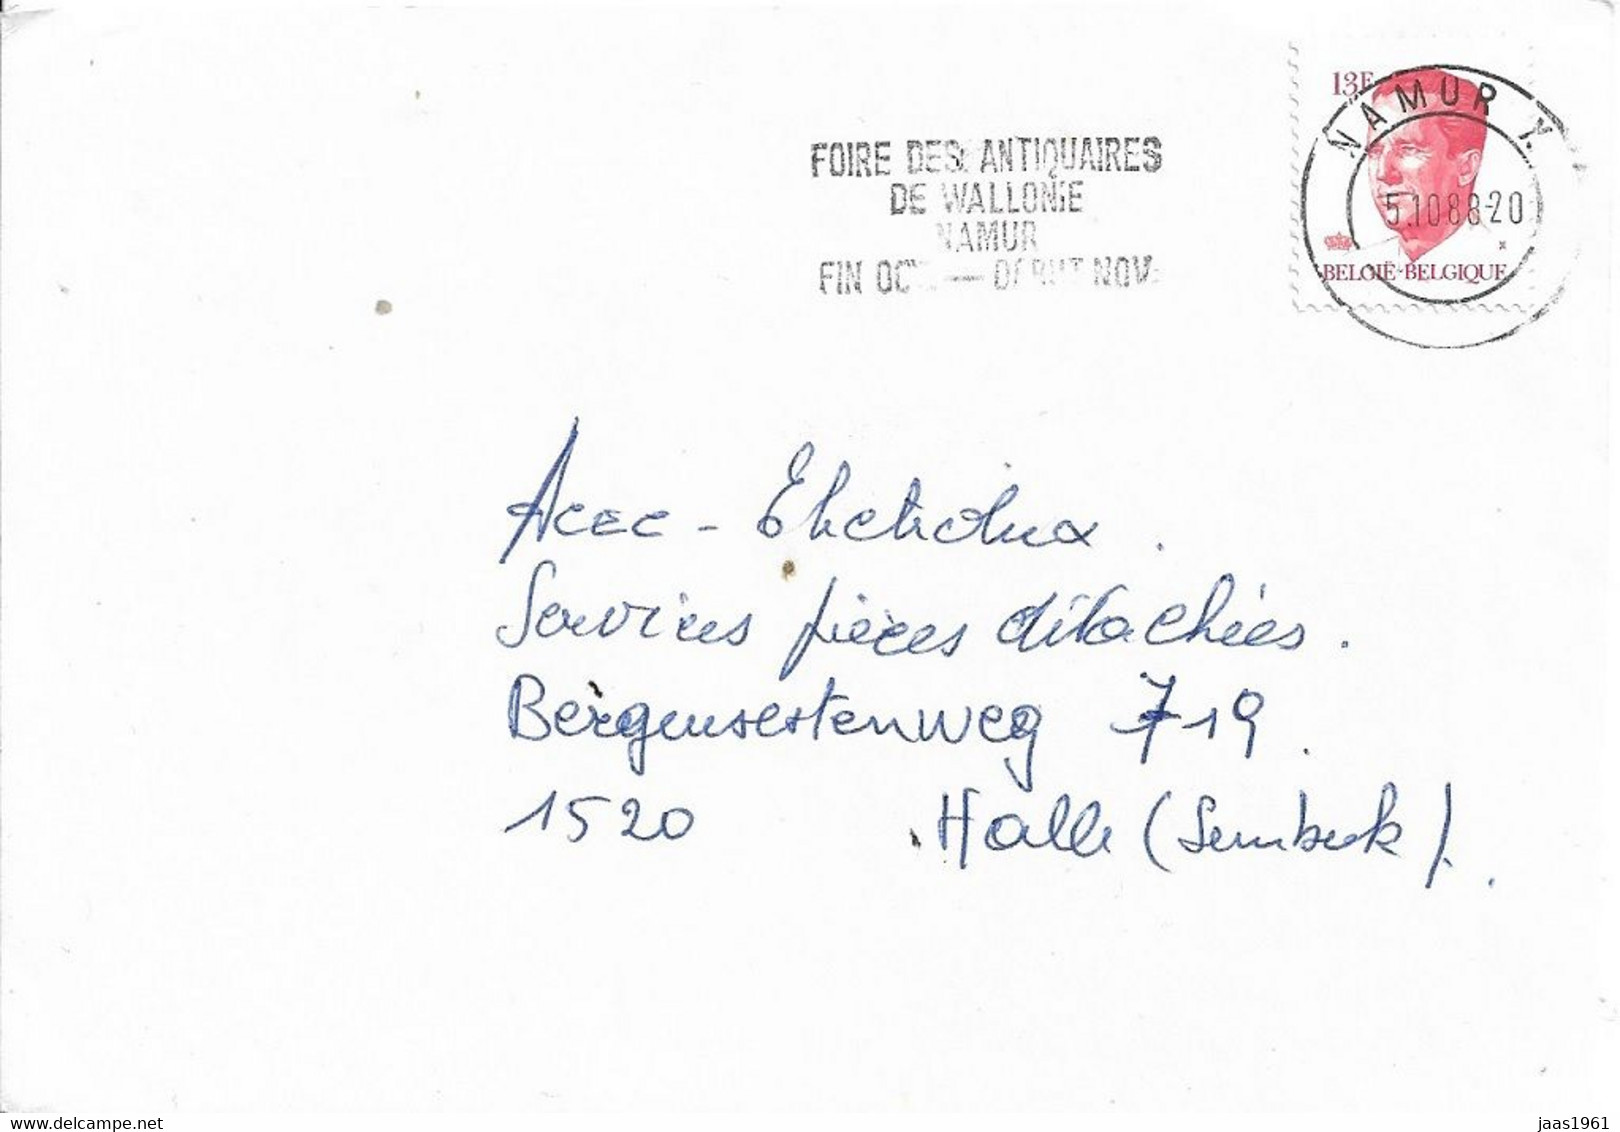 FOIRE DES ANTIQUAIRES
DE WALLONIE
NAMUR
FIN OCT. — DEBUT NOV.
13F
NAMUR
5.10.88-20
BELGIË-BELGIQUE
Acec - Electrolux.
Services pièces détachées.
Bergensestenweg 719.
1520 Halle (Lembeek).
www.delcampe.net
jaas1961